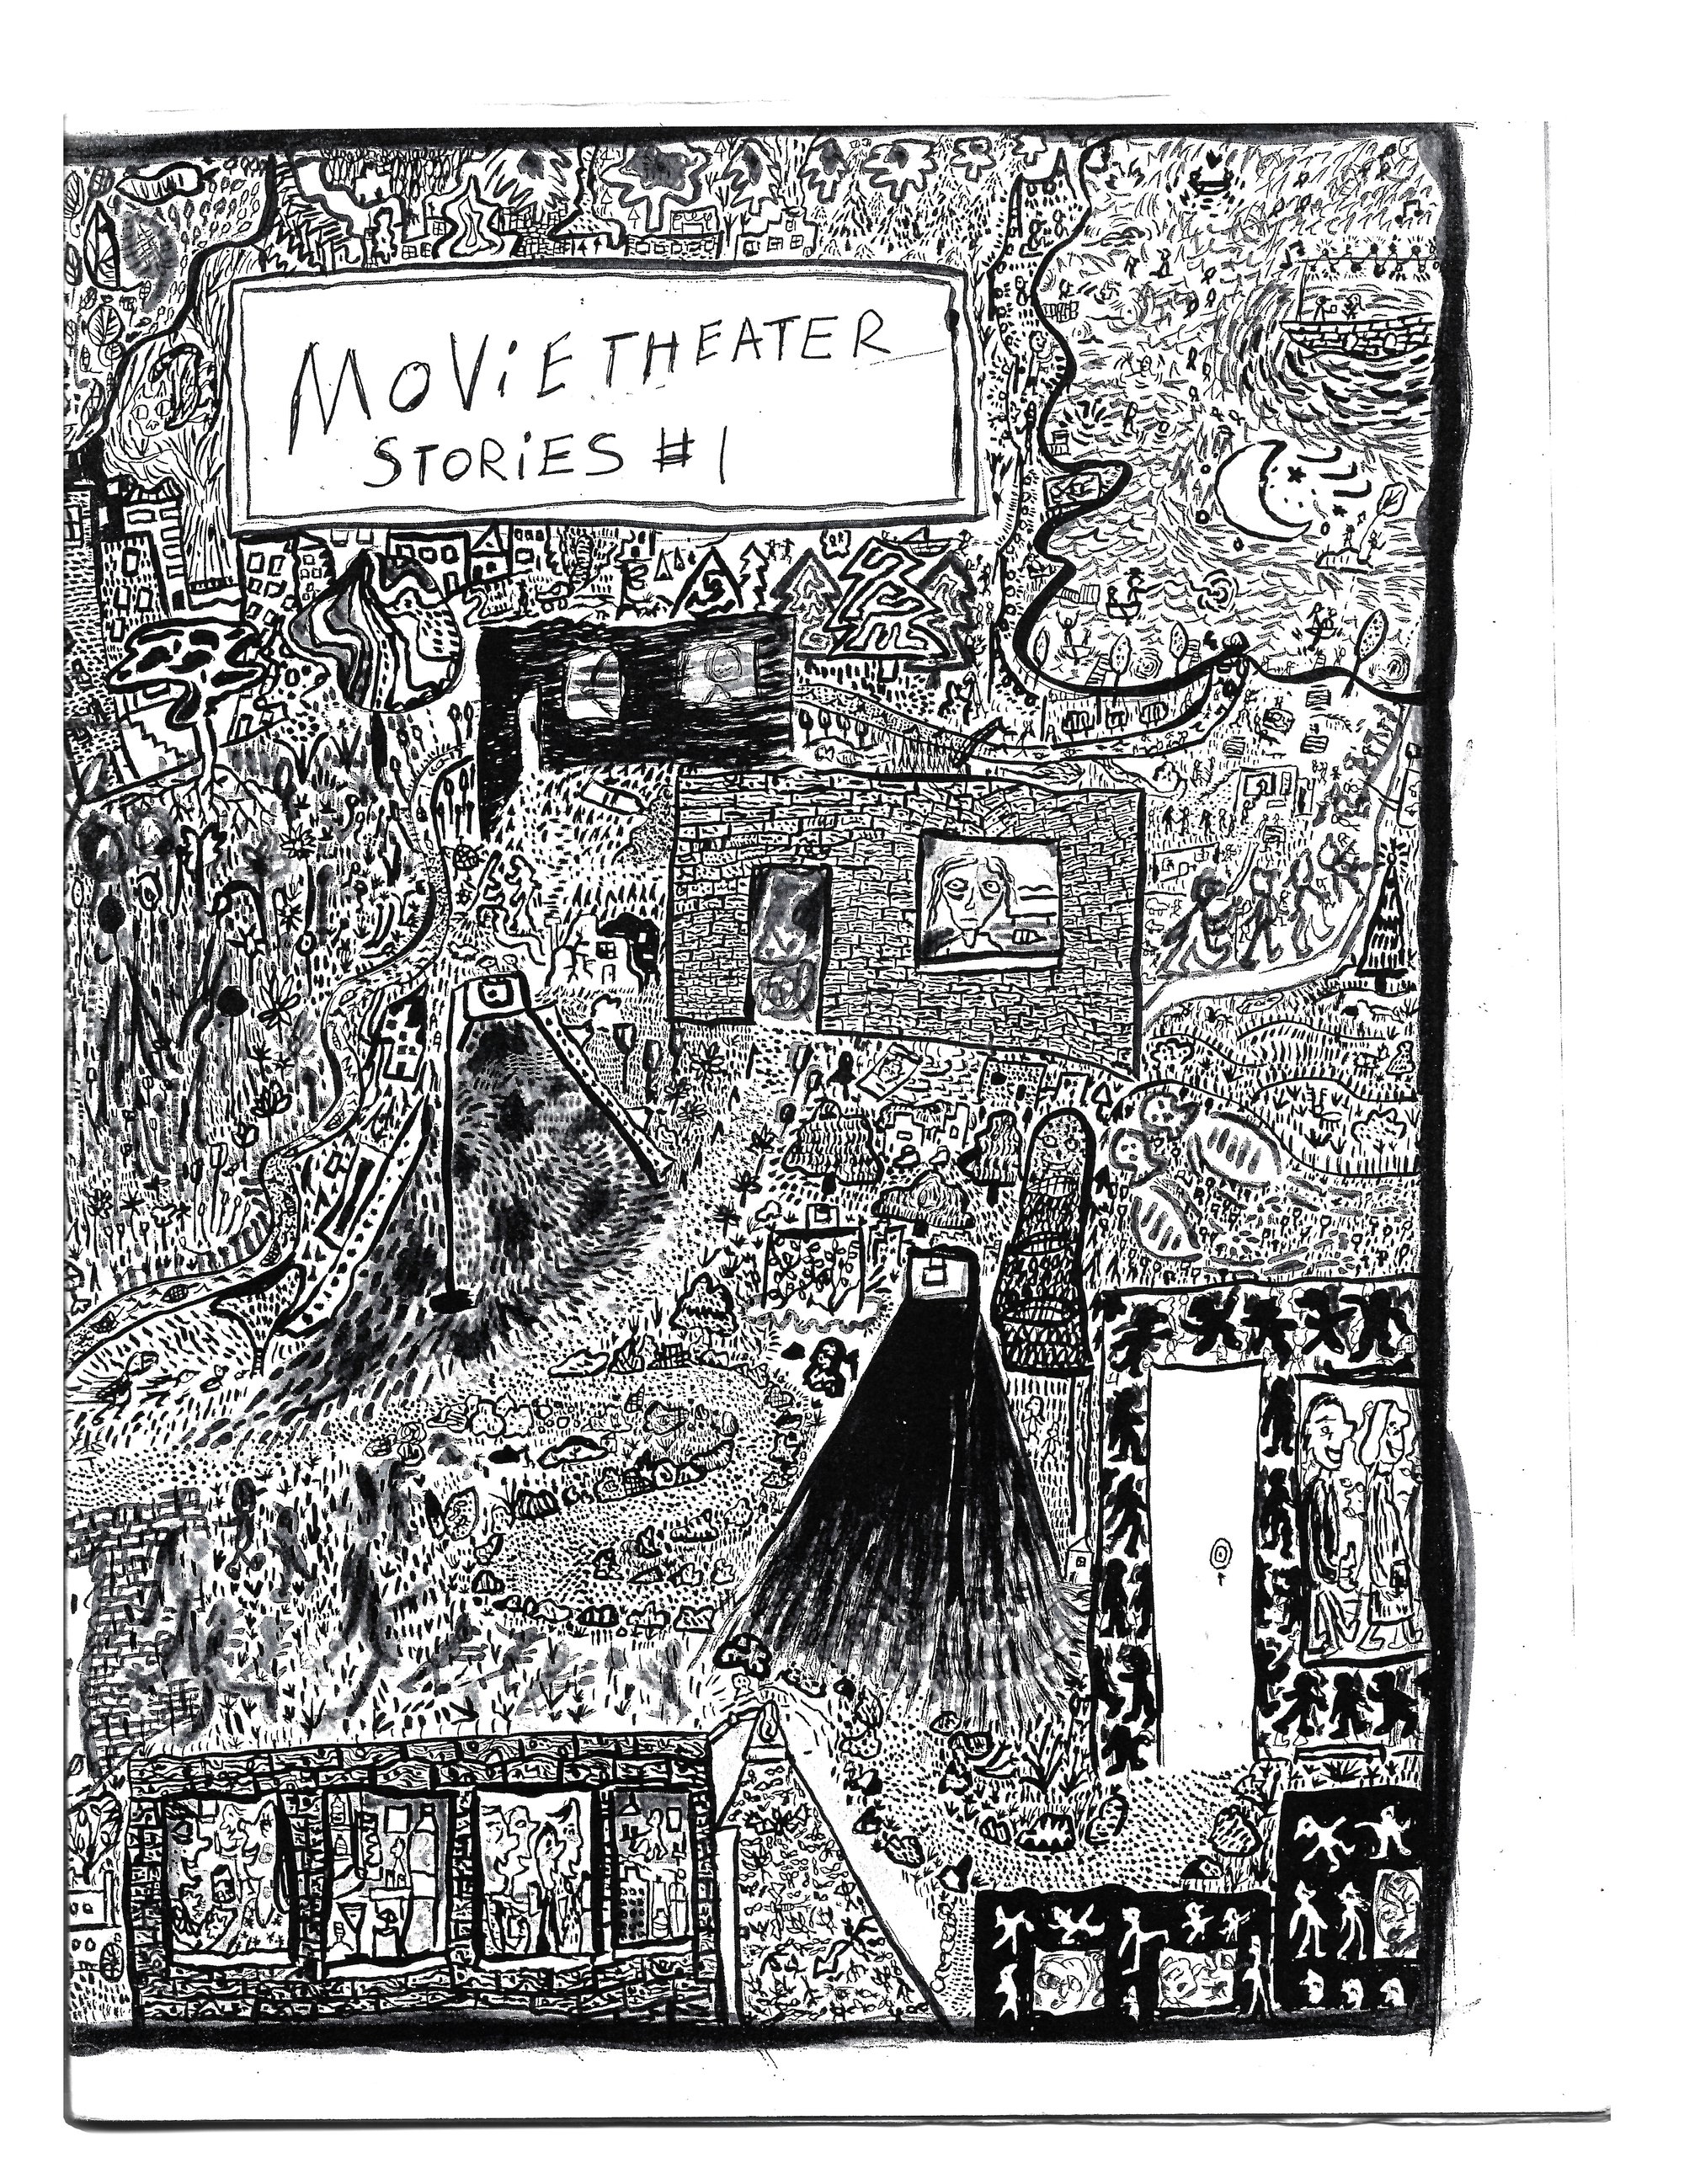 MOViE THEATER
STORiES #1